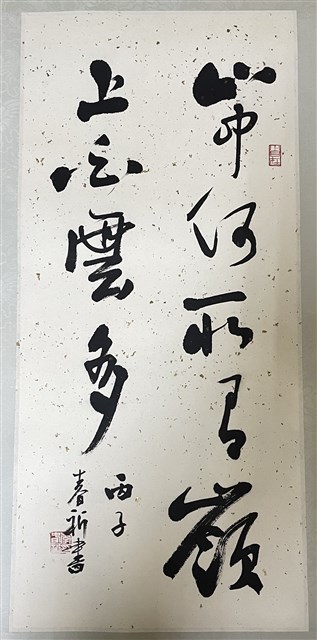 山中何所有嶺
上白雲多
丙子
春祈書